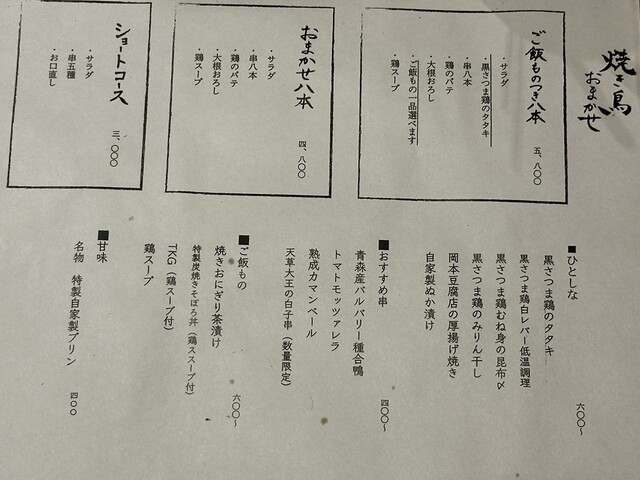 焼き鳥
おまかせ
ご飯ものつき八本
五、八〇〇
・サラダ
・黒さつま鶏のタタキ
・串八本
・鶏のパテ
・大根おろし
・ご飯もの一品選べます
・鶏スープ
おまかせ八本
四、八〇〇
・サラダ
・串八本
・鶏のパテ
・大根おろし
・鶏スープ
ショートコース
三、〇〇〇
・サラダ
・串五種
・お口直し
■ひとしな
六〇〇~
黒さつま鶏のタタキ
黒さつま鶏白レバー低温調理
黒さつま鶏むね身の昆布〆
黒さつま鶏のみりん干し
岡本豆腐店の厚揚げ焼き
自家製ぬか漬け
■おすすめ串
四〇〇~
青森産バルバリー種合鴨
トマトモッツァレラ
熟成カマンベール
天草大王の白子串(数量限定)
■ご飯もの
六〇〇~
焼きおにぎり茶漬け
特製炭焼きそぼろ丼(鶏ススープ付)
TKG(鶏スープ付)
鶏スープ
■甘味
名物 特製自家製プリン 四〇〇